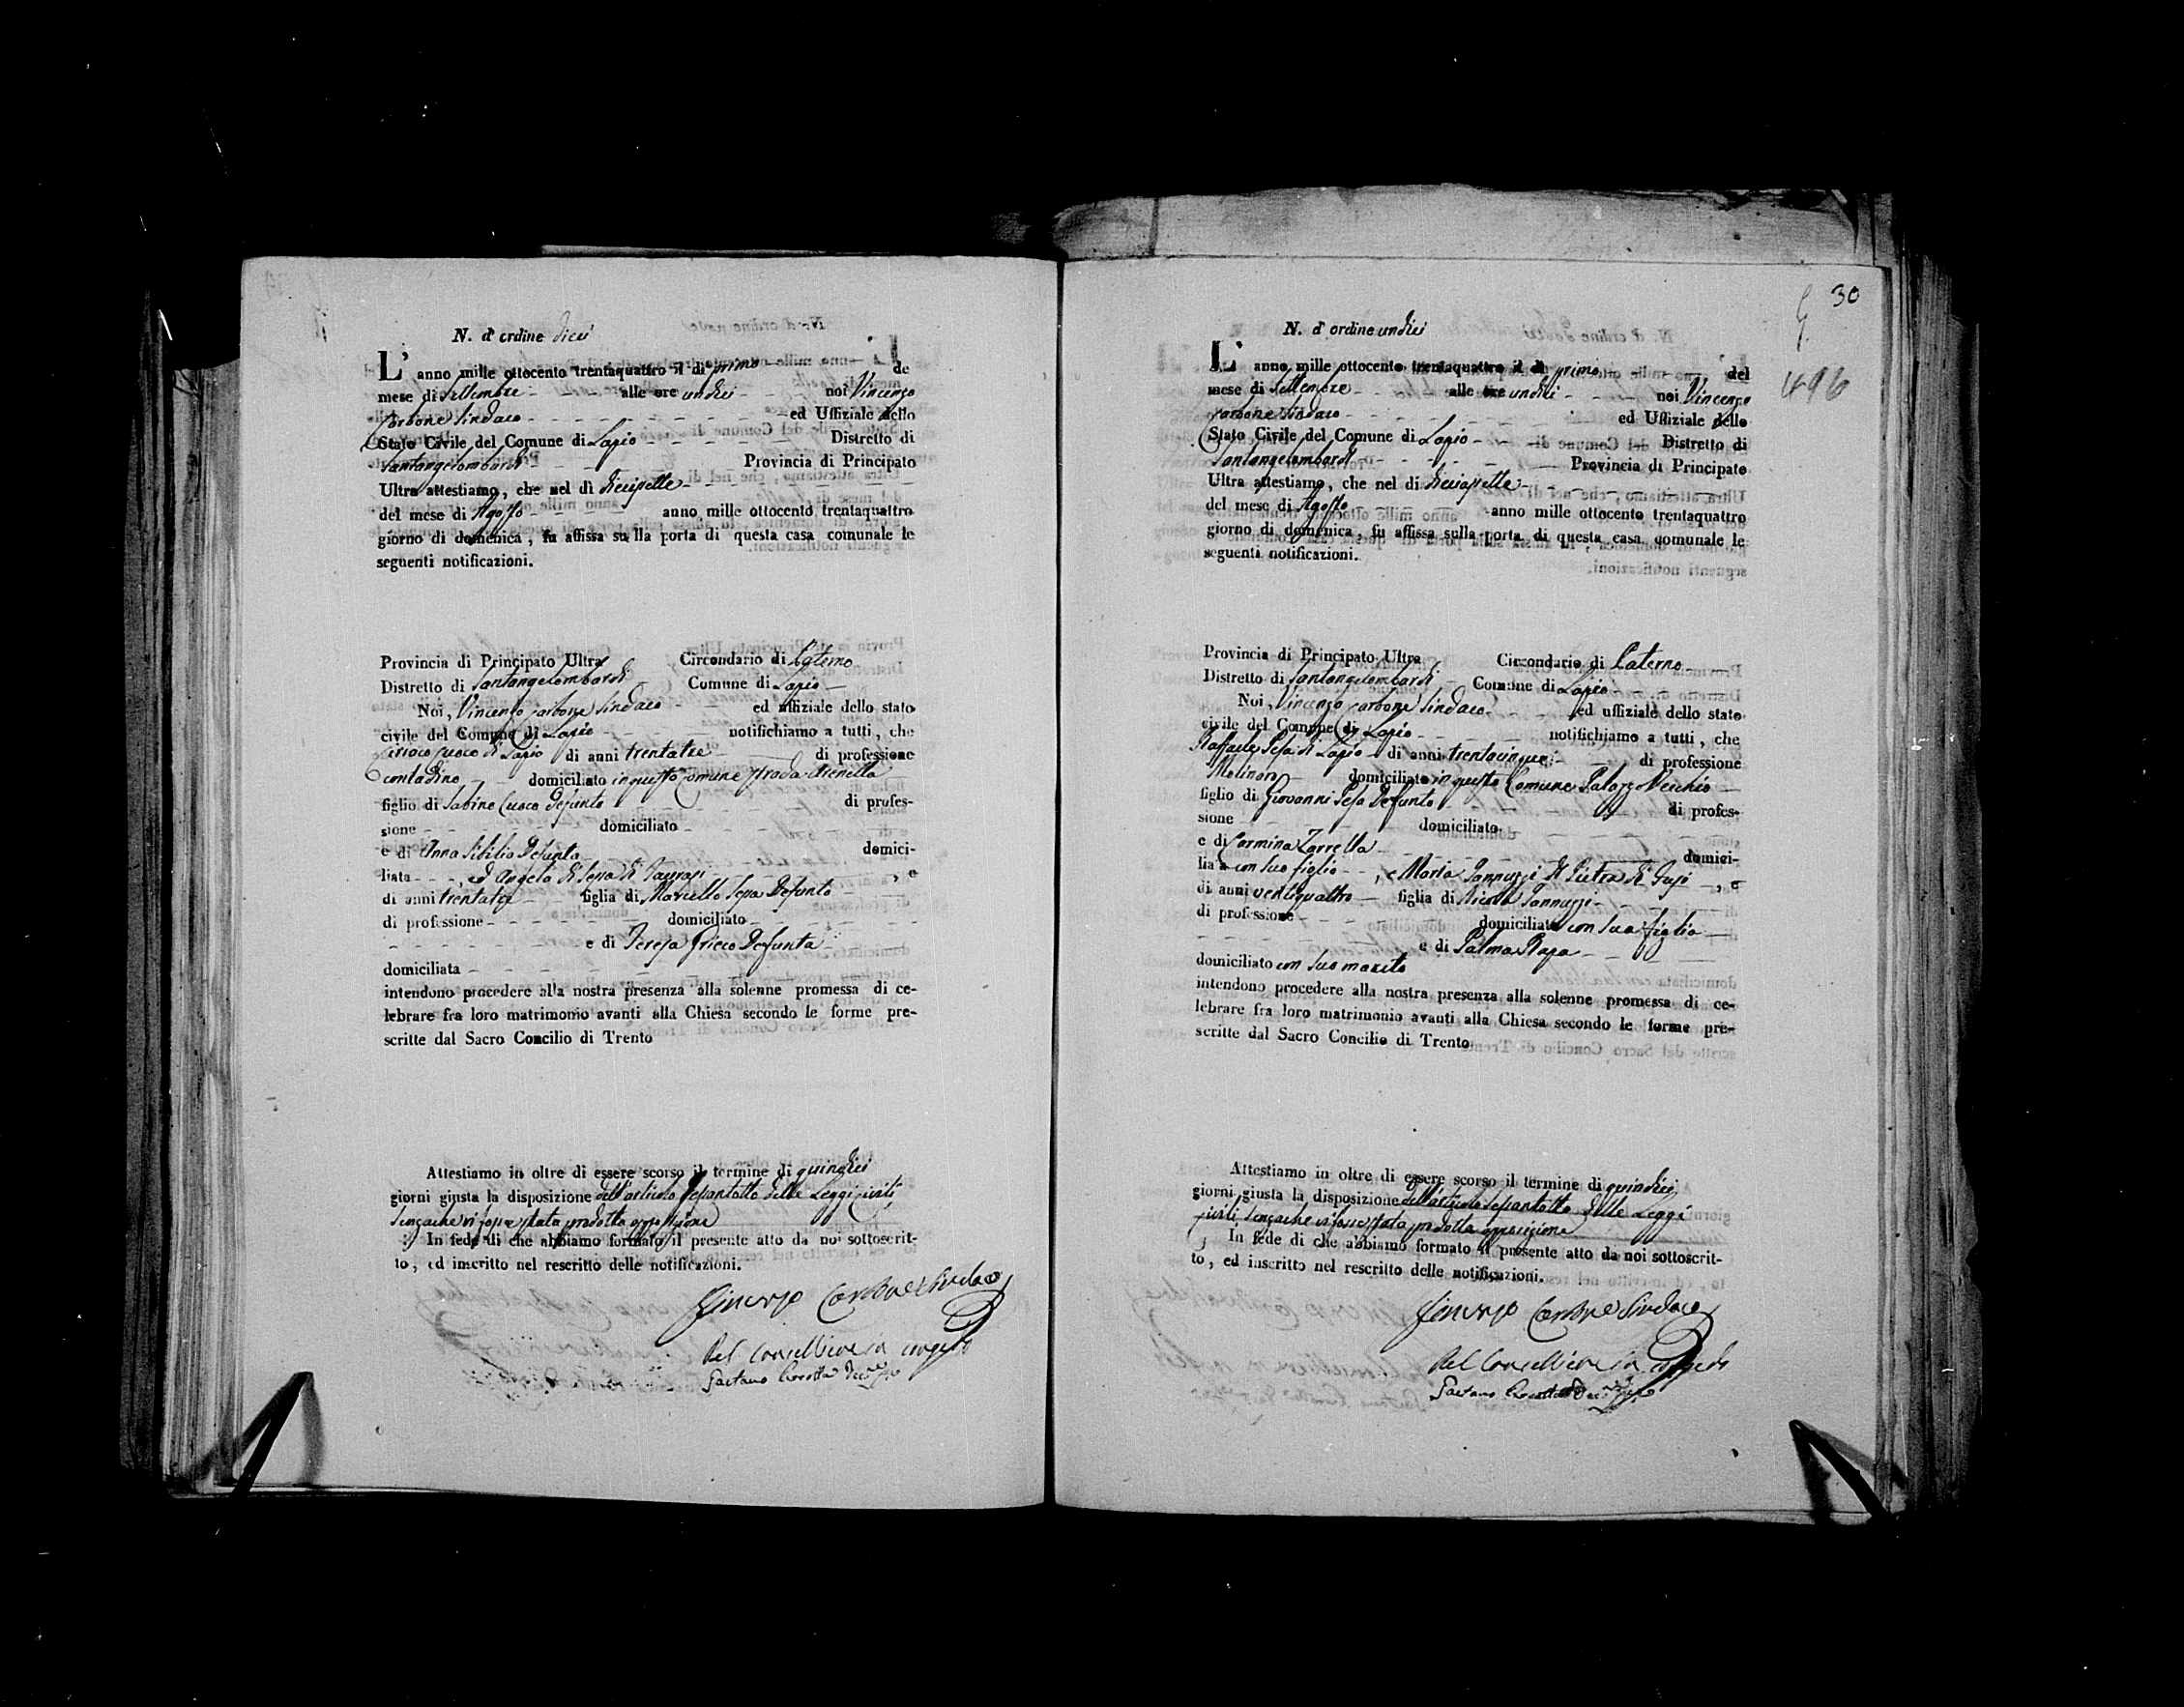 N. d'ordine dieci
L' anno mille ottocento trentaquattro il di primo de
mese di Settembre alle ore undici noi Vincenzo
Carbone Sindaco ed Uffiziale dello
Stato Civile del Comune di Lapio Distretto di
Santangelombardi Provincia di Principato
Ultra attestiamo, che nel dì diecisette
del mese di Agosto anno mille ottocento trentaquattro
giorno di domenica, fu affissa sulla porta di questa casa comunale le
seguenti notificazioni.
Provincia di Principato Ultra Circondario di Paterno
Distretto di Santangelombardi Comune di Lapio
Noi, Vincenzo Carbone Sindaco ed uffiziale dello stato
civile del Comune di Lapio notifichiamo a tutti, che
Ciriaco Cuoco di Lapio di anni trentatre di professione
contadino domiciliato in questo Comune strada
figlio di Sabino Cuoco Defunto di profes-
sione domiciliato
e di Anna Sibilio Defunta domici-
liata, ed Angela di Sena di Taurasi, e
di anni trentatre figlia di Marcello Sena Defunto
di professione domiciliato
e di Teresa Grieco Defunta
domiciliata
intendono procedere alla nostra presenza alla solenne promessa di ce-
lebrare fra loro matrimonio avanti alla Chiesa secondo le forme pre-
scritte dal Sacro Concilio di Trento
Attestiamo in oltre di essere scorso il termine di quindici
giorni giusta la disposizione dell'articolo sessantotto delle Leggi civili
senzache vi fosse stata prodotta opposizione
In fede di che abbiamo formato il presente atto da noi sottoscrit-
to, ed inscritto nel rescritto delle notificazioni.
Vincenzo Carbone Sindaco
Pel Cancelliere in congedo
Gaetano
30
496
N. d'ordine undici
L' anno mille ottocento trentaquattro il di primo del
mese di Settembre alle ore undici noi Vincenzo
Carbone Sindaco ed Uffiziale dello
Stato Civile del Comune di Lapio Distretto di
Santangelombardi Provincia di Principato
Ultra attestiamo, che nel di diecisette
del mese di Agosto anno mille ottocento trentaquattro
giorno di domenica, fu affissa sulla porta di questa casa comunale le
seguenti notificazioni.
Provincia di Principato Ultra Circondario di Paterno
Distretto di Santangelombardi Comune di Lapio
Noi, Vincenzo Carbone Sindaco ed uffiziale dello stato
civile del Comune di Lapio notifichiamo a tutti, che
Raffaele Pesa di Lapio di anni trentacinque di professione
Molinaro domiciliato in questo Comune Palazzo Vecchio
figlio di Giovanni Pesa Defunto di profes-
sione domiciliato
e di Carmina Zarrella domici-
liata con suo figlio, e Maria Iannuzzi di Pietra di Fusi, e
di anni ventiquattro figlia di Nicola Iannuzzi
di professione domiciliato con sua figlia
e di Palma Rapa
domiciliato con suo marito
intendono procedere alla nostra presenza alla solenne promessa di ce-
lebrare fra loro matrimonio avanti alla Chiesa secondo le forme pre-
scritte dal Sacro Concilio di Trento
Attestiamo in oltre di essere scorso il termine di quindici
giorni giusta la disposizione dell'articolo sessantotto delle Leggi
civili, senzache vi fosse stata prodotta opposizione
In fede di che abbiamo formato il presente atto da noi sottoscrit-
to, ed inscritto nel rescritto delle notificazioni.
Vincenzo Carbone Sindaco
Pel Cancelliere in congedo
Gaetano